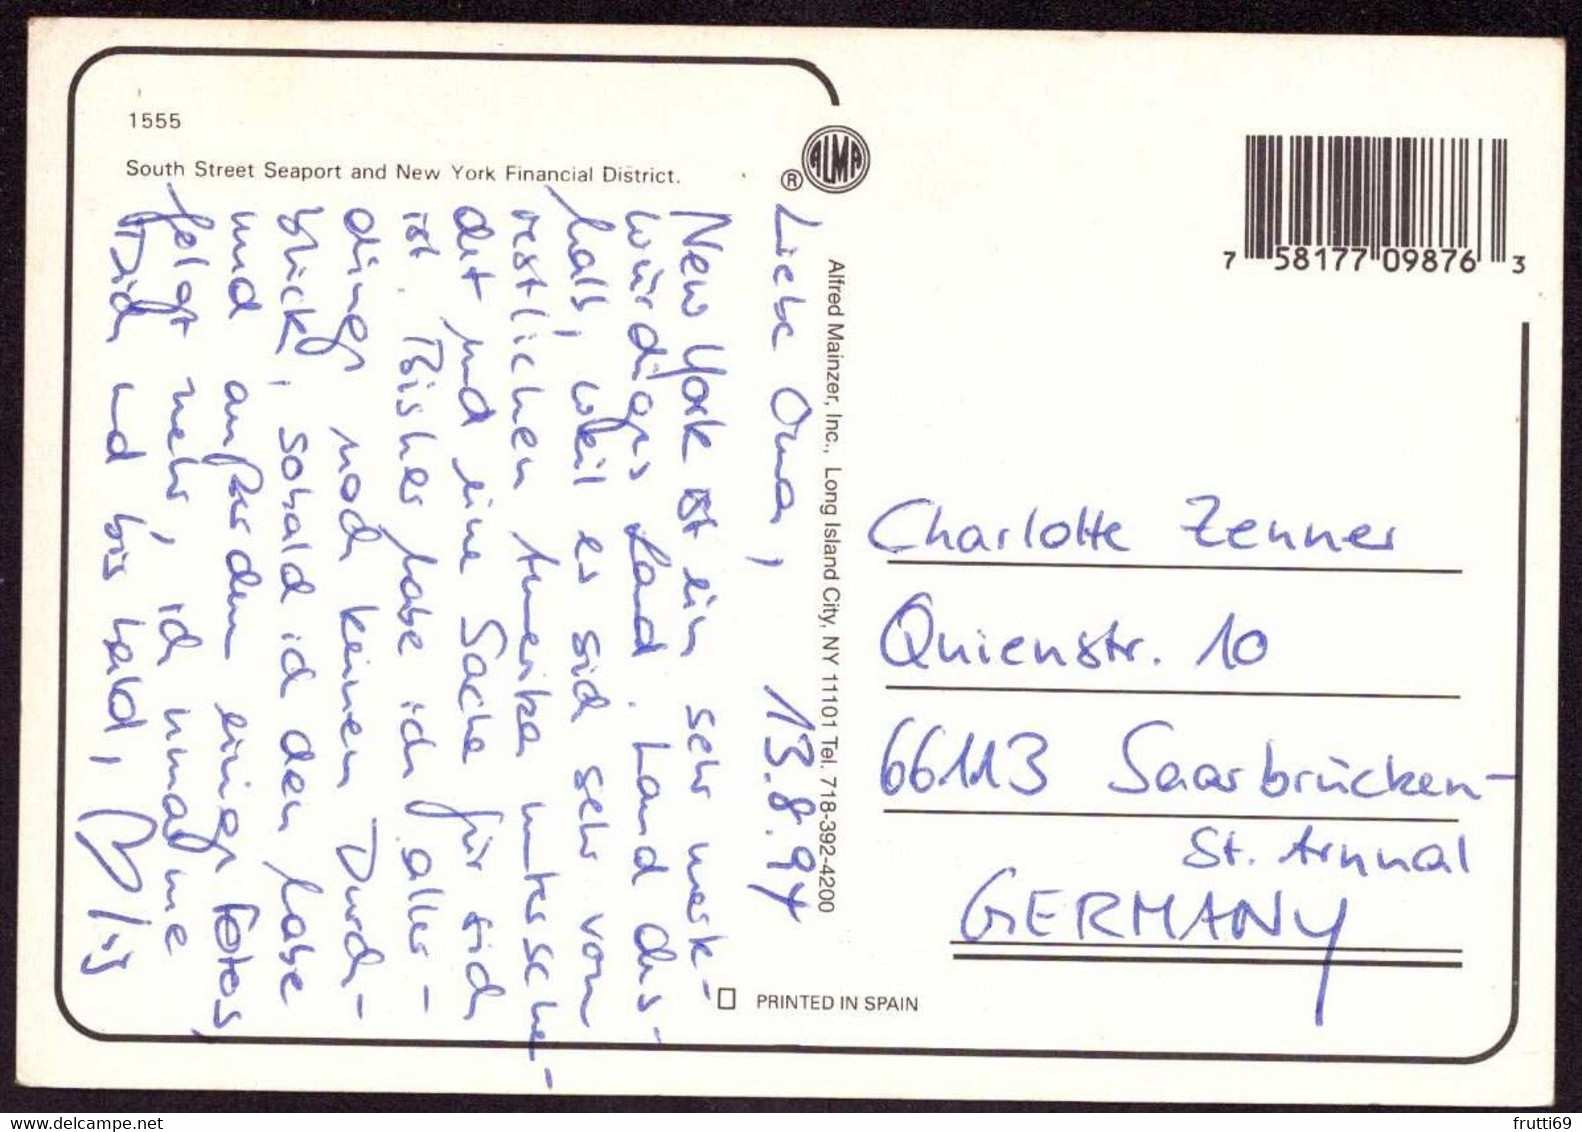 1555
South Street Seaport and New York Financial District.
ALMA
®
Alfred Mainzer, Inc., Long Island City, NY 11101 Tel. 718-392-4200
7 58177 09876 3
Liebe Oma, 13.8.94
New York ist ein sehr merk-
würdiges Land. Land des-
halb, weil es sich sehr vom
restlichen Amerika untersche-
idet und eine Sache für sich
ist. Bisher habe ich aller-
dings noch keinen Durch-
blick, sobald ich den habe
und außerdem einige Fotos,
folgt mehr, ich umarme
Dich und bis bald,
Charlotte Zenner
Quienstr. 10
66113 Saarbrücken-
St. Arnual
GERMANY
PRINTED IN SPAIN
www.delcampe.net
frutti69